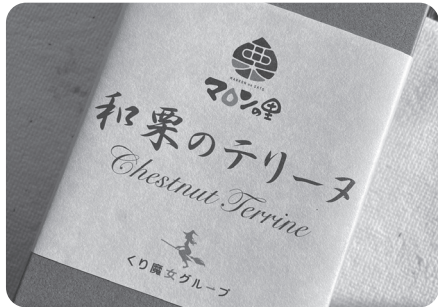 栗
MARRON no SATO
マロンの里
和栗のテリーヌ
Chestnut Terrine
くり魔女グループ